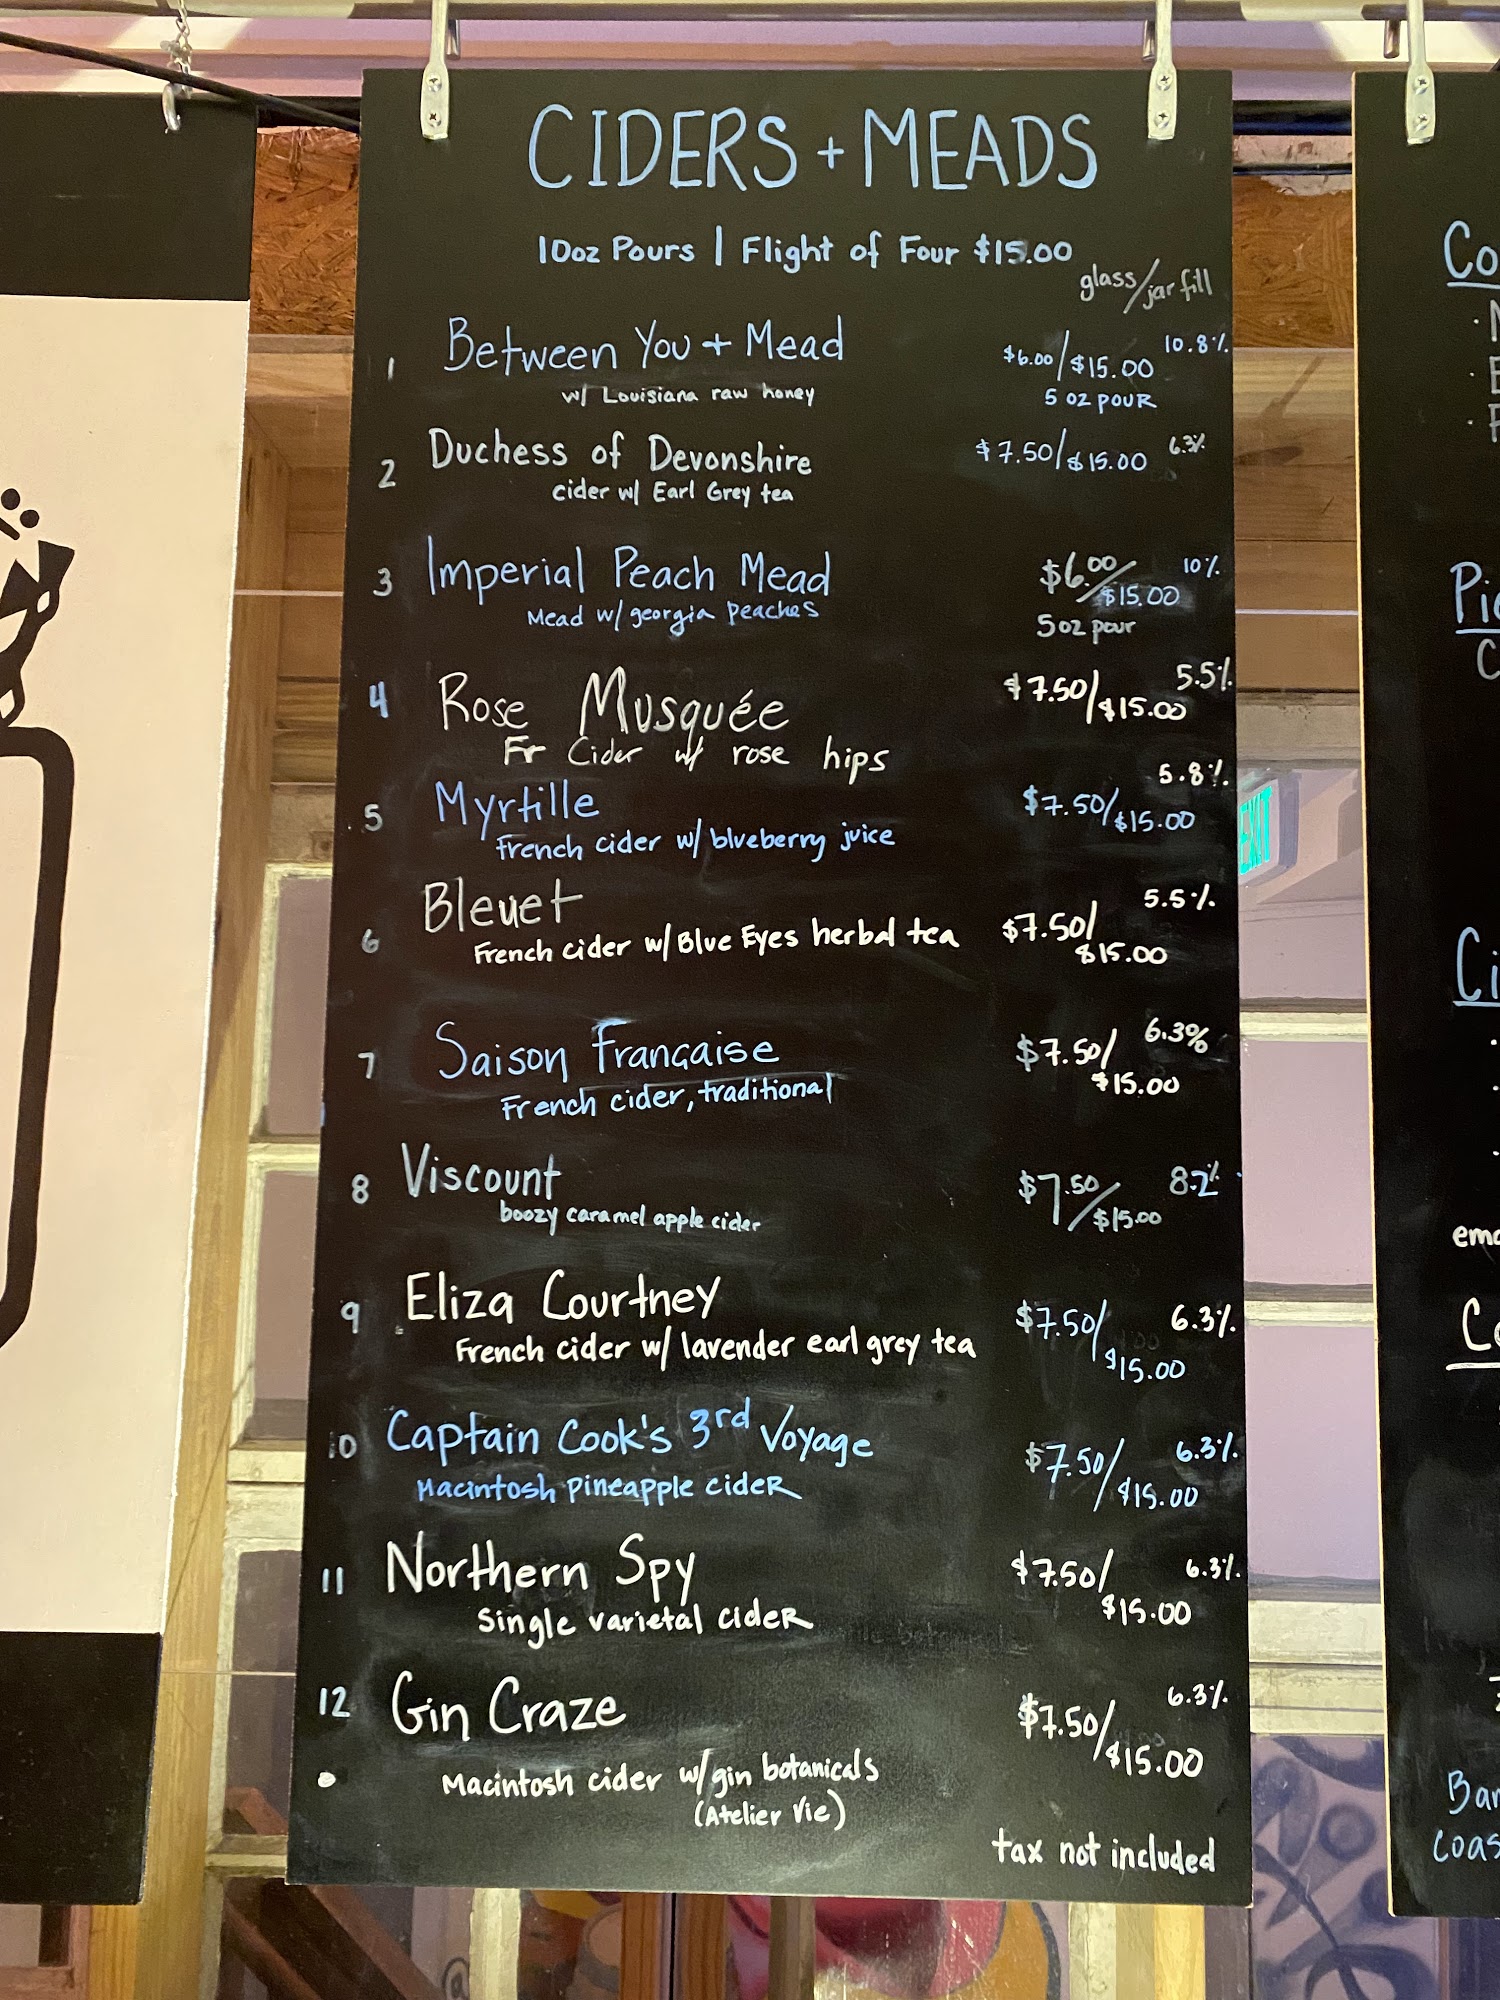 CIDERS + MEADS
10oz Pours | Flight of Four $15.00
glass/jar fill
1 Between You + Mead $6.00/$15.00 10.8%
w/ Louisiana raw honey 5 oz POUR
2 Duchess of Devonshire $7.50/$15.00 6.3%
cider w/ Earl Grey tea
3 Imperial Peach Mead $6.00/$15.00 10%
Mead w/ georgia peaches 5oz pour
4 Rose Musquée $7.50/$15.00 5.5%
Fr Cider w/ rose hips
5 Myrtille $7.50/$15.00 5.8%
French cider w/ blueberry juice
6 Bleuet $7.50/$15.00 5.5%
French cider w/ Blue Eyes herbal tea
7 Saison Francaise $7.50/$15.00 6.3%
French cider, traditional
8 Viscount $7.50/$15.00 8.2%
boozy caramel apple cider
9 Eliza Courtney $7.50/$15.00 6.3%
French cider w/ lavender earl grey tea
10 Captain Cook's 3rd Voyage $7.50/$15.00 6.3%
Macintosh pineapple cider
11 Northern Spy $7.50/$15.00 6.3%
Single varietal cider
12 Gin Craze $7.50/$15.00 6.3%
Macintosh cider w/ gin botanicals
(Atelier Vie)
tax not included
EXIT